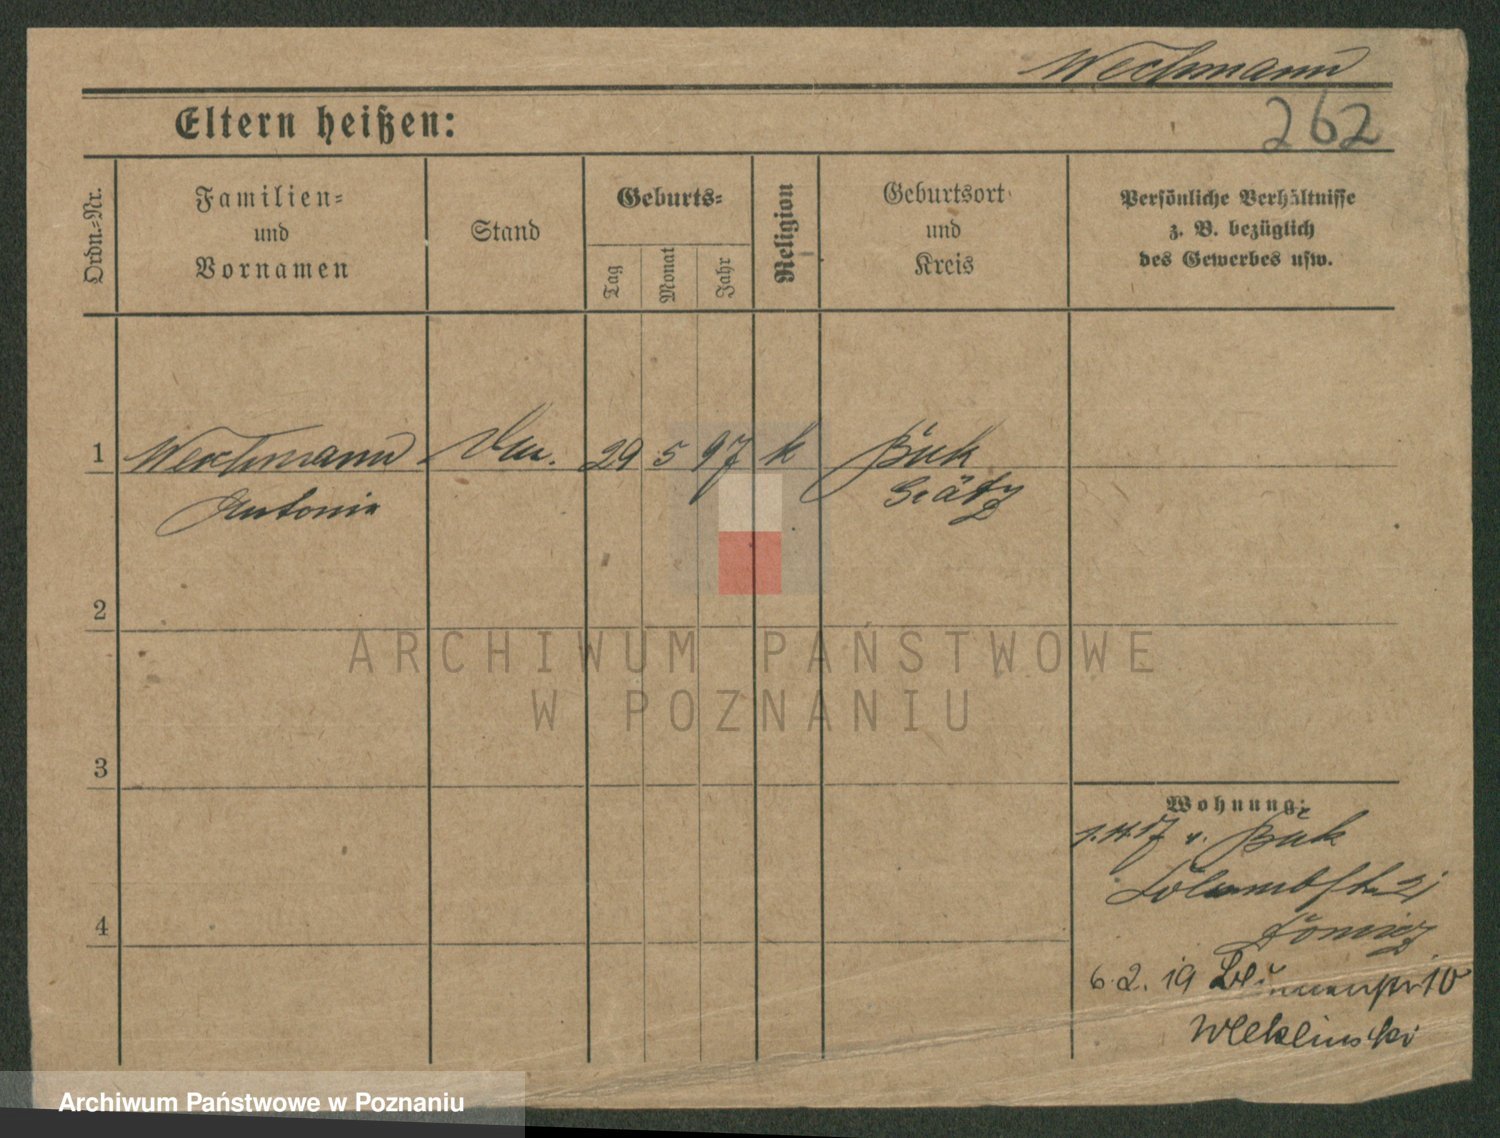 Wechmann
Eltern heißen:
262
Ordn.-Nr.
Familien-
und
Vornamen
Stand
Geburts-
Tag
Monat
Jahr
Religion
Geburtsort
und
Kreis
Persönliche Verhältnisse
z. B. bezüglich
des Gewerbes usw.
1 Wechmann 29 5 97 k Buk
Antonie Grätz
2
3
4
Wohnung:
Buk
6.2.19 Blumenstr 10
Wleklinski
ARCHIWUM PAŃSTWOWE
W POZNANIU
Archiwum Państwowe w Poznaniu